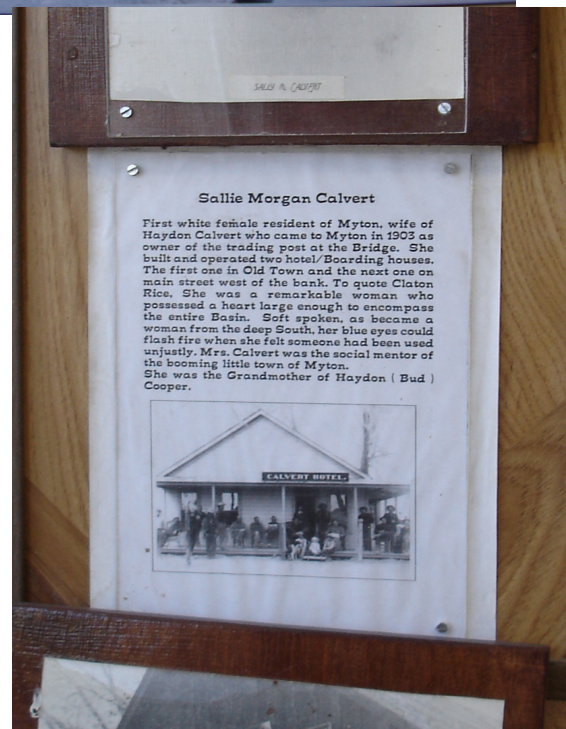 SALLY M. CALVERT
Sallie Morgan Calvert
First white female resident of Myton, wife of
Haydon Calvert who came to Myton in 1903 as
owner of the trading post at the Bridge. She
built and operated two hotel/Boarding houses.
The first one in Old Town and the next one on
main street west of the bank. To quote Claton
Rice, She was a remarkable woman who
possessed a heart large enough to encompass
the entire Basin. Soft spoken, as became a
woman from the deep South, her blue eyes could
flash fire when she felt someone had been used
unjustly. Mrs. Calvert was the social mentor of
the booming little town of Myton.
She was the Grandmother of Haydon ( Bud )
Cooper.
CALVERT HOTEL.